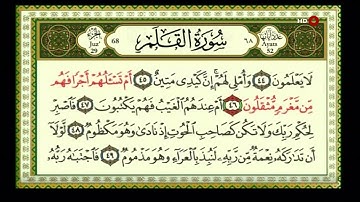 HD
الجزء
Juz'
29
68
سورة القلم
٦٨
Ayats
52
لَا يَعْلَمُونَ ٤٤ وَأُمْلِي لَهُمْ إِنَّ كَيْدِي مَتِينٌ ٤٥ أَمْ تَسْأَلُهُمْ أَجْرًا فَهُم
مِّن مَّغْرَمٍ مُّثْقَلُونَ ٤٦ أَمْ عِندَهُمُ الْغَيْبُ فَهُمْ يَكْتُبُونَ ٤٧ فَاصْبِرْ
لِحُكْمِ رَبِّكَ وَلَا تَكُن كَصَاحِبِ الْحُوتِ إِذْ نَادَىٰ وَهُوَ مَكْظُومٌ ٤٨ لَّوْلَا
أَن تَدَارَكَهُ نِعْمَةٌ مِّن رَّبِّهِ لَنُبِذَ بِالْعَرَاءِ وَهُوَ مَذْمُومٌ ٤٩ فَاجْتَبَاهُ رَبُّهُ